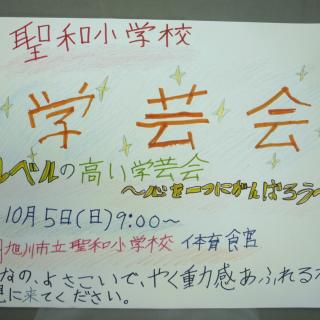 聖和小学校
学芸会
レベルの高い学芸会
〜心を一つにがんばろう〜
10月5日(日)9:00〜
旭川市立聖和小学校 体育館
なの、よさこいで、やく動感あふれる
見に来てください。